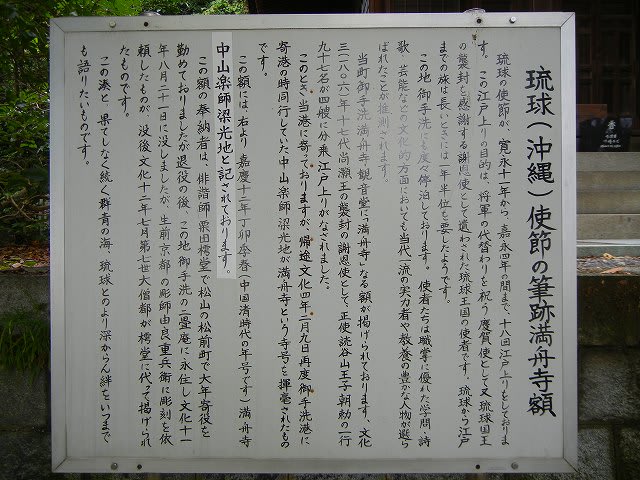 琉球(沖縄)使節の筆跡満舟寺額
琉球の使節が、寛永十一年から、嘉永四年の間まで、十八回江戸上りをしておりま
す。この江戸上りの目的は、将軍の代替わりを祝う慶賀使として又琉球国王
の襲封を感謝する謝恩使として遣わされた琉球王国の使者です。琉球から江戸
までの旅は長いときには一年半位を要したようです。
この地御手洗にも度々停泊しております。使者たちは職掌に優れた学問詩
歌、芸能などの文化的方面においても当代一流の実力者や教養の豊かな人物が選ら
ばれたことが推測されます。
当町御手洗満舟寺観音堂に「満舟寺」なる額が掲げられております。文化
三(一八〇六)年十七代尚灝王の襲封の謝恩使として、正使読谷山王子朝勅の一行
九十七名が四艘に分乗江戸上りがなされました。
このとき、当港に寄っておりますが、帰途文化四年二月九日再度御手洗港に
寄港の時同行していた中山楽師梁光地が満舟寺という寺号を揮毫されたもの
です。
この額には、右より嘉慶十二年丁卯季春(中国清時代の年号です)満舟寺
中山楽師梁光地と記されております。
この額の奉納者は、俳諧師栗田樗堂で松山の松前町で大年寄役を
勤めておりましたが退役の後、この地御手洗の二畳庵に永住し文化十一
年八月二十一日に没しましたが、生前京都の彫師由良重兵衛に彫刻を依
頼したものが、没後文化十二年七月第七世大僧都が樗堂に代って掲げられ
たものです。
この湊と果てしなく続く群青の海、琉球とのより深からん絆をいつまで
も語りたいものです。